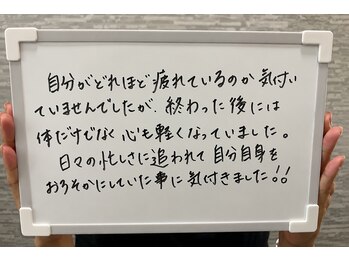 自分がどれほど疲れているのか気付い
ていませんでしたが、終わった後には
体だけでなく心も軽くなっていました。
日々の忙しさに追われて自分自身を
おろそかにしていた事に気付きました!!